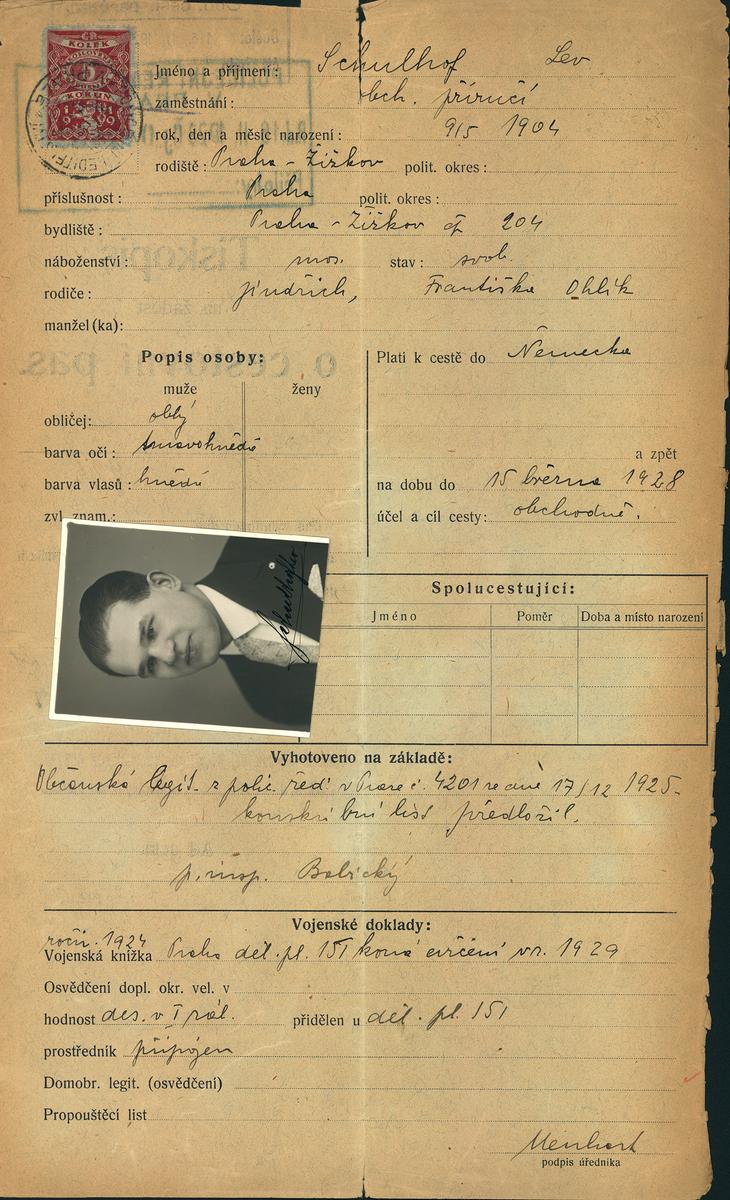 KOLEK
5
KORUN
1919
Jméno a příjmení: Schulhof Lev
zaměstnání: obch. příručí
rok, den a měsíc narození: 9/5 1904
rodiště: Praha - Žižkov polit. okres:
příslušnost: Praha polit. okres:
bydliště: Praha - Žižkov čp 204
náboženství: mos. stav: svob.
rodiče: Jindřich, Františka Ohlík
manžel (ka):
Popis osoby:
muže ženy
obličej: oblý
barva očí: tmavohnědé
barva vlasů: hnědé
zvl. znam.:
Platí k cestě do Německa
a zpět
na dobu do 15 března 1928
účel a cíl cesty: obchodně.
Schulhof
Spolucestující:
Jméno Poměr Doba a místo narození
Vyhotoveno na základě:
Občanská legit. z polic. řed. v Praze č. 4201 ze dne 17/12 1925-
konskribní list předložil.
p. insp. Bobický
Vojenské doklady:
ročn. 1924
Vojenská knížka Praha děl. pl. 151 koná cvičení v r. 1929
Osvědčení dopl. okr. vel. v
hodnost des. v I zál. přidělen u děl. pl. 151
prostředník připojen
Domobr. legit. (osvědčení)
Propouštěcí list
Menhart
podpis úředníka